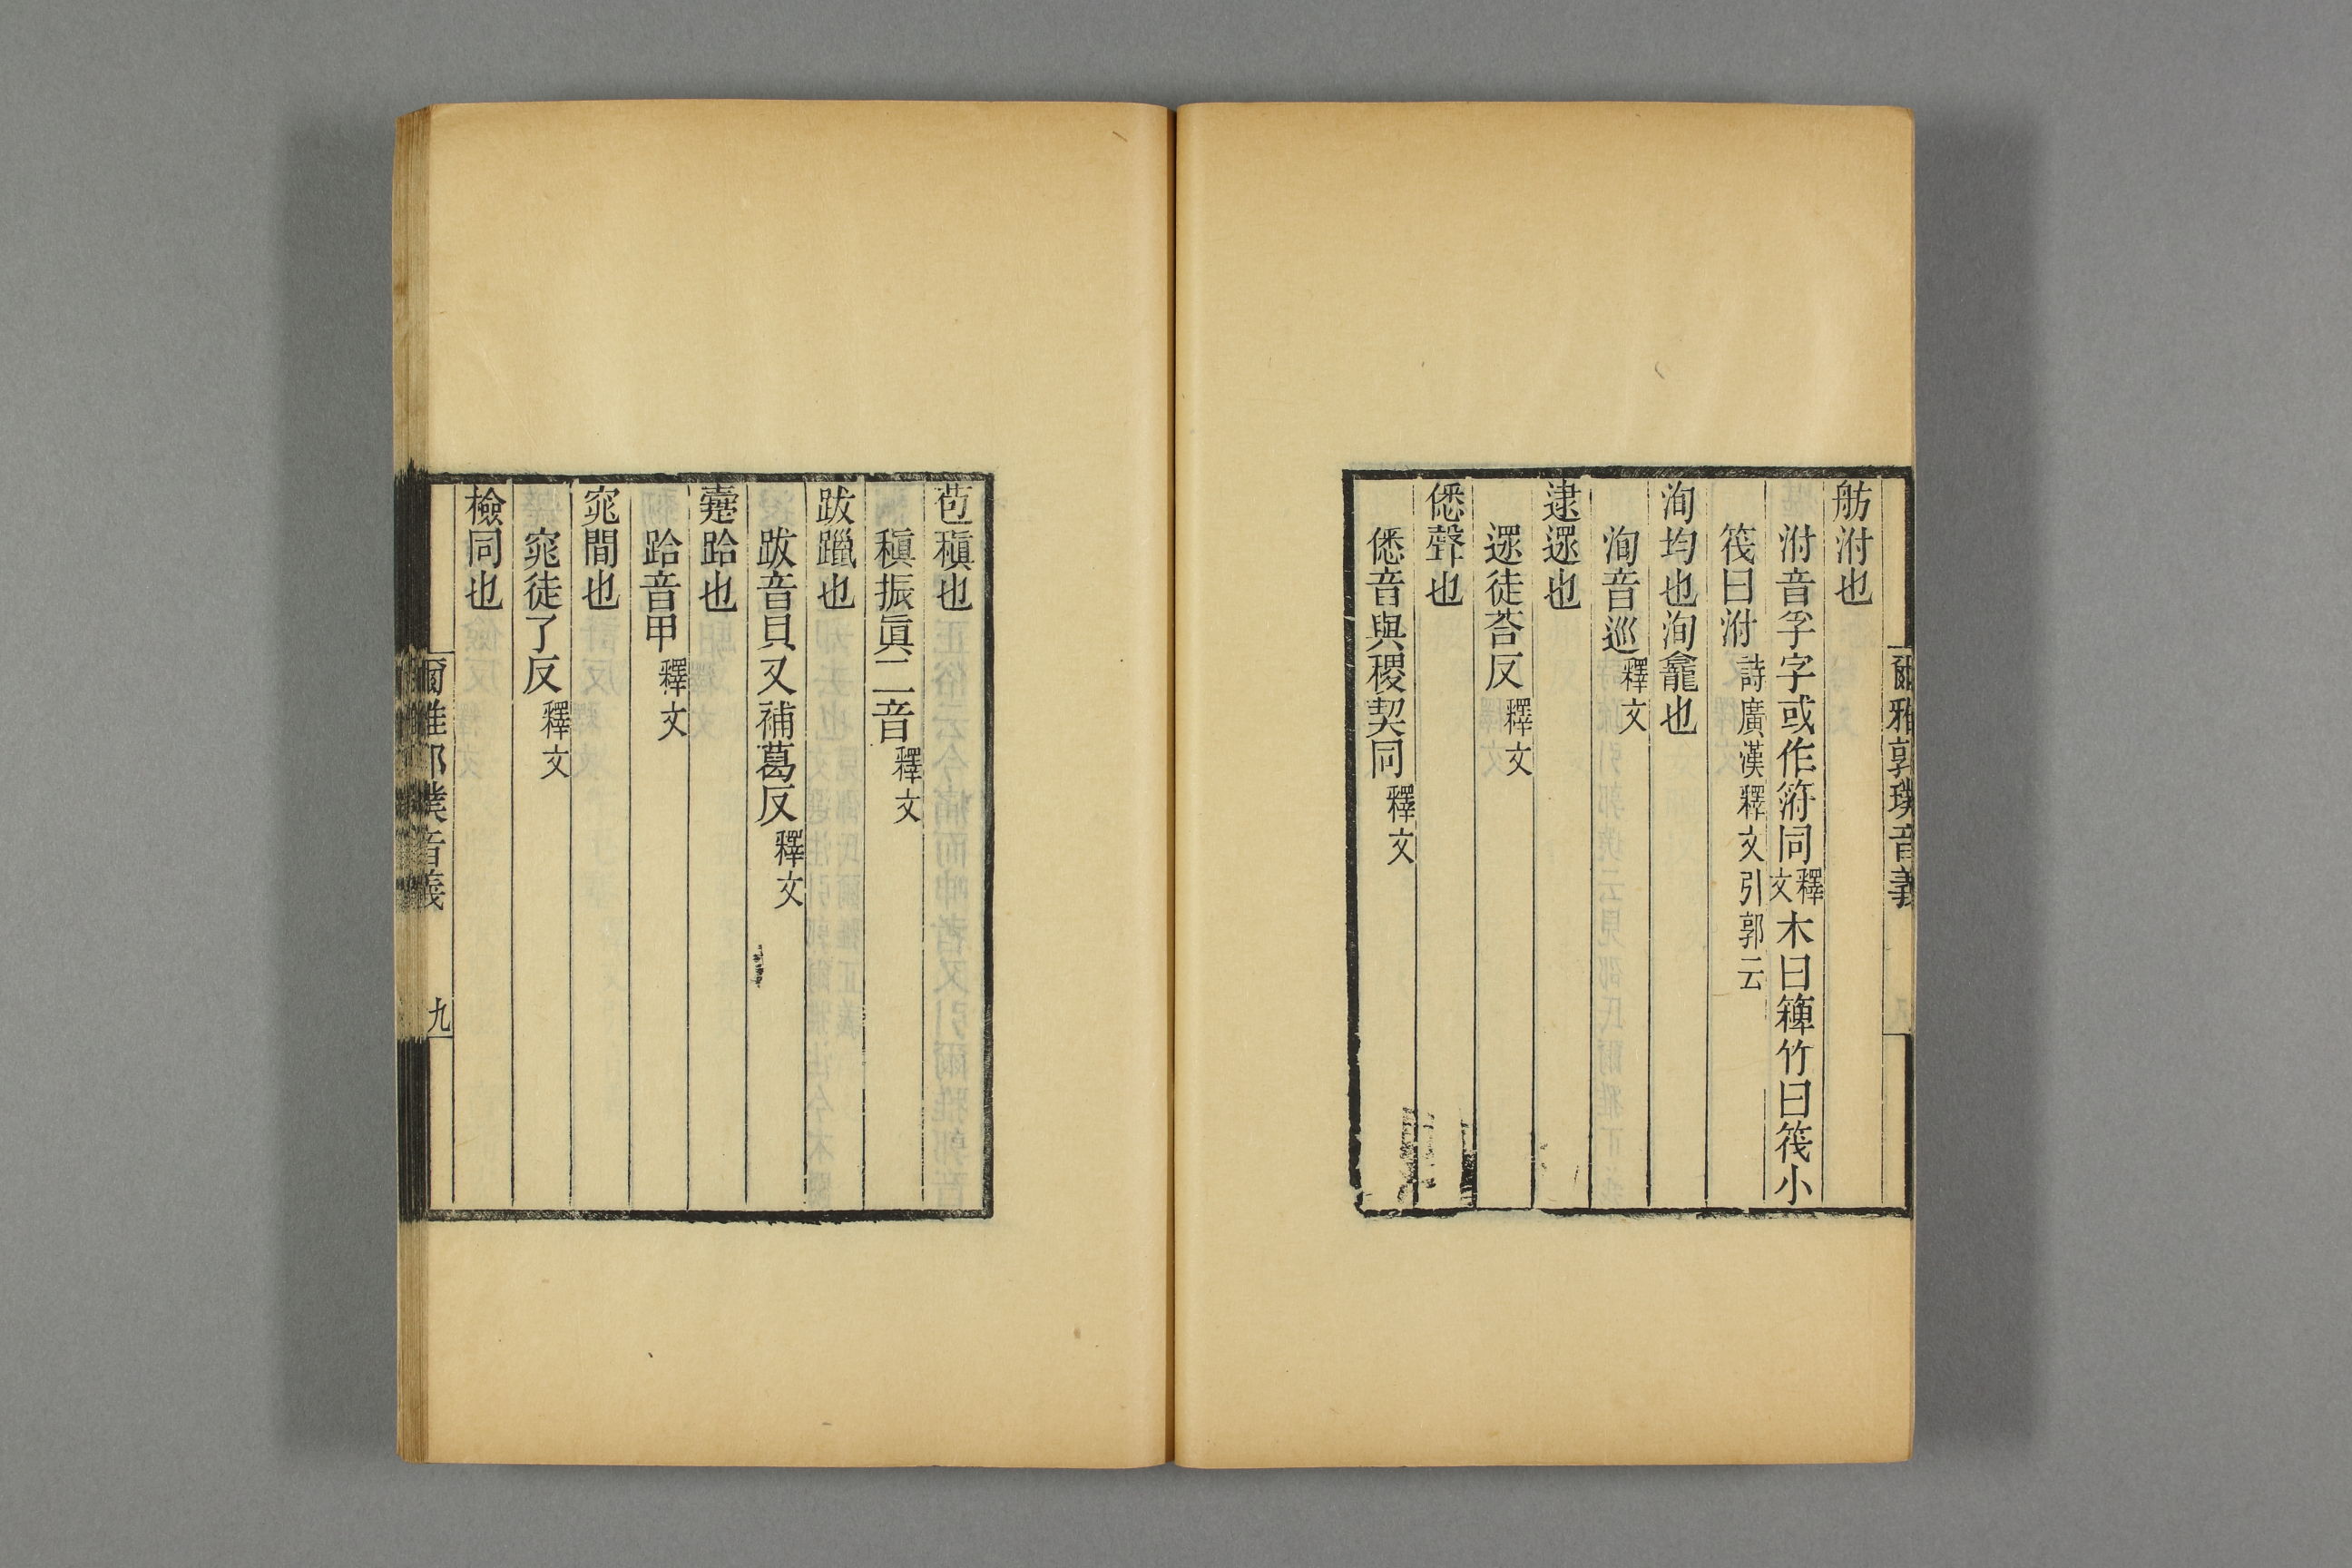 爾雅郭璞音義
舫泭也
泭音孚字或作䈞同釋文木曰簰竹曰筏小
筏曰泭詩廣漢釋文引郭云
洵均也洵龕也
洵音巡釋文
逮遝也
遝徒荅反釋文
僁聲也
僁音與稷契同釋文
苞稹也
稹振眞二音釋文
跋躐也
跋音貝又補葛反釋文
疐跲也
跲音甲釋文
窕閒也
窕徒了反釋文
檢同也
爾雅郭璞音義 九